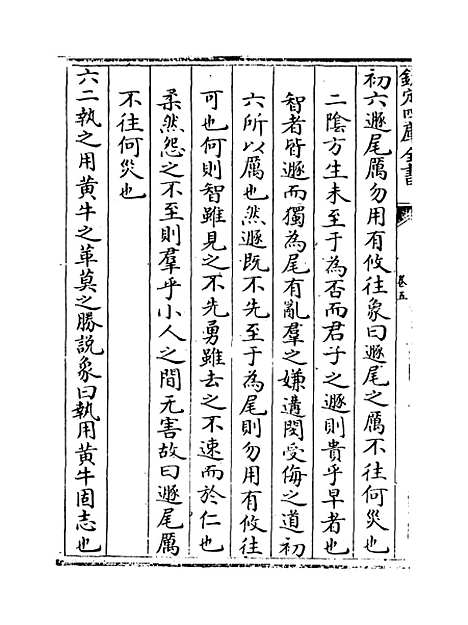 欽定四庫全書
卷五
初六遯尾厲勿用有攸往象曰遯尾之厲不往何災也
二陰方生未至于為否而君子之遯則貴乎早者也
智者皆遯而獨為尾有亂羣之嫌遘閔受侮之道初
六所以厲也然遯既不先至于為尾則勿用有攸往
可也何則智雖見之不先勇雖去之不速而於仁也
柔然怨之不至則羣乎小人之間无害故曰遯尾厲
不往何災也
六二執之用黄牛之革莫之勝説象曰執用黄牛固志也